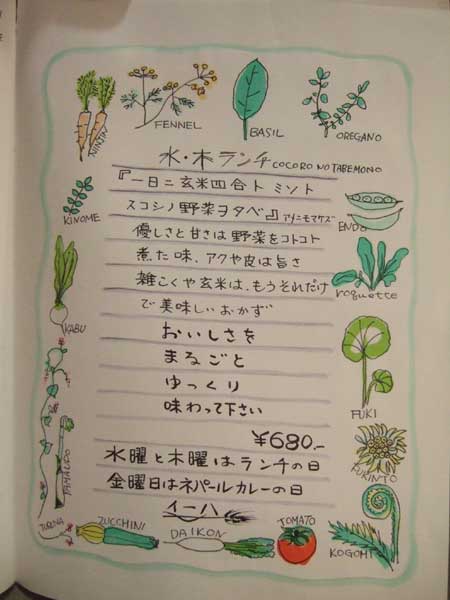 NINJIN
FENNEL
BASIL
OREGANO
水・木ランチ COCORO NO TABEMONO
『一日ニ玄米四合ト ミソト
スコシノ野菜ヲタベ』アメニモマケズ
優しさと甘さは野菜をコトコト
煮た味、アクや皮は旨さ
雑こくや玄米は、もうそれだけ
で美味しいおかず
おいしさを
まるごと
ゆっくり
味わって下さい
¥680.-
水曜と木曜はランチの日
金曜日はネパールカレーの日
イーハ
KINOME
KABU
ENDO
roquette
FUKI
ZUCCHINI
DAIKON
TOMATO
KOGOMI